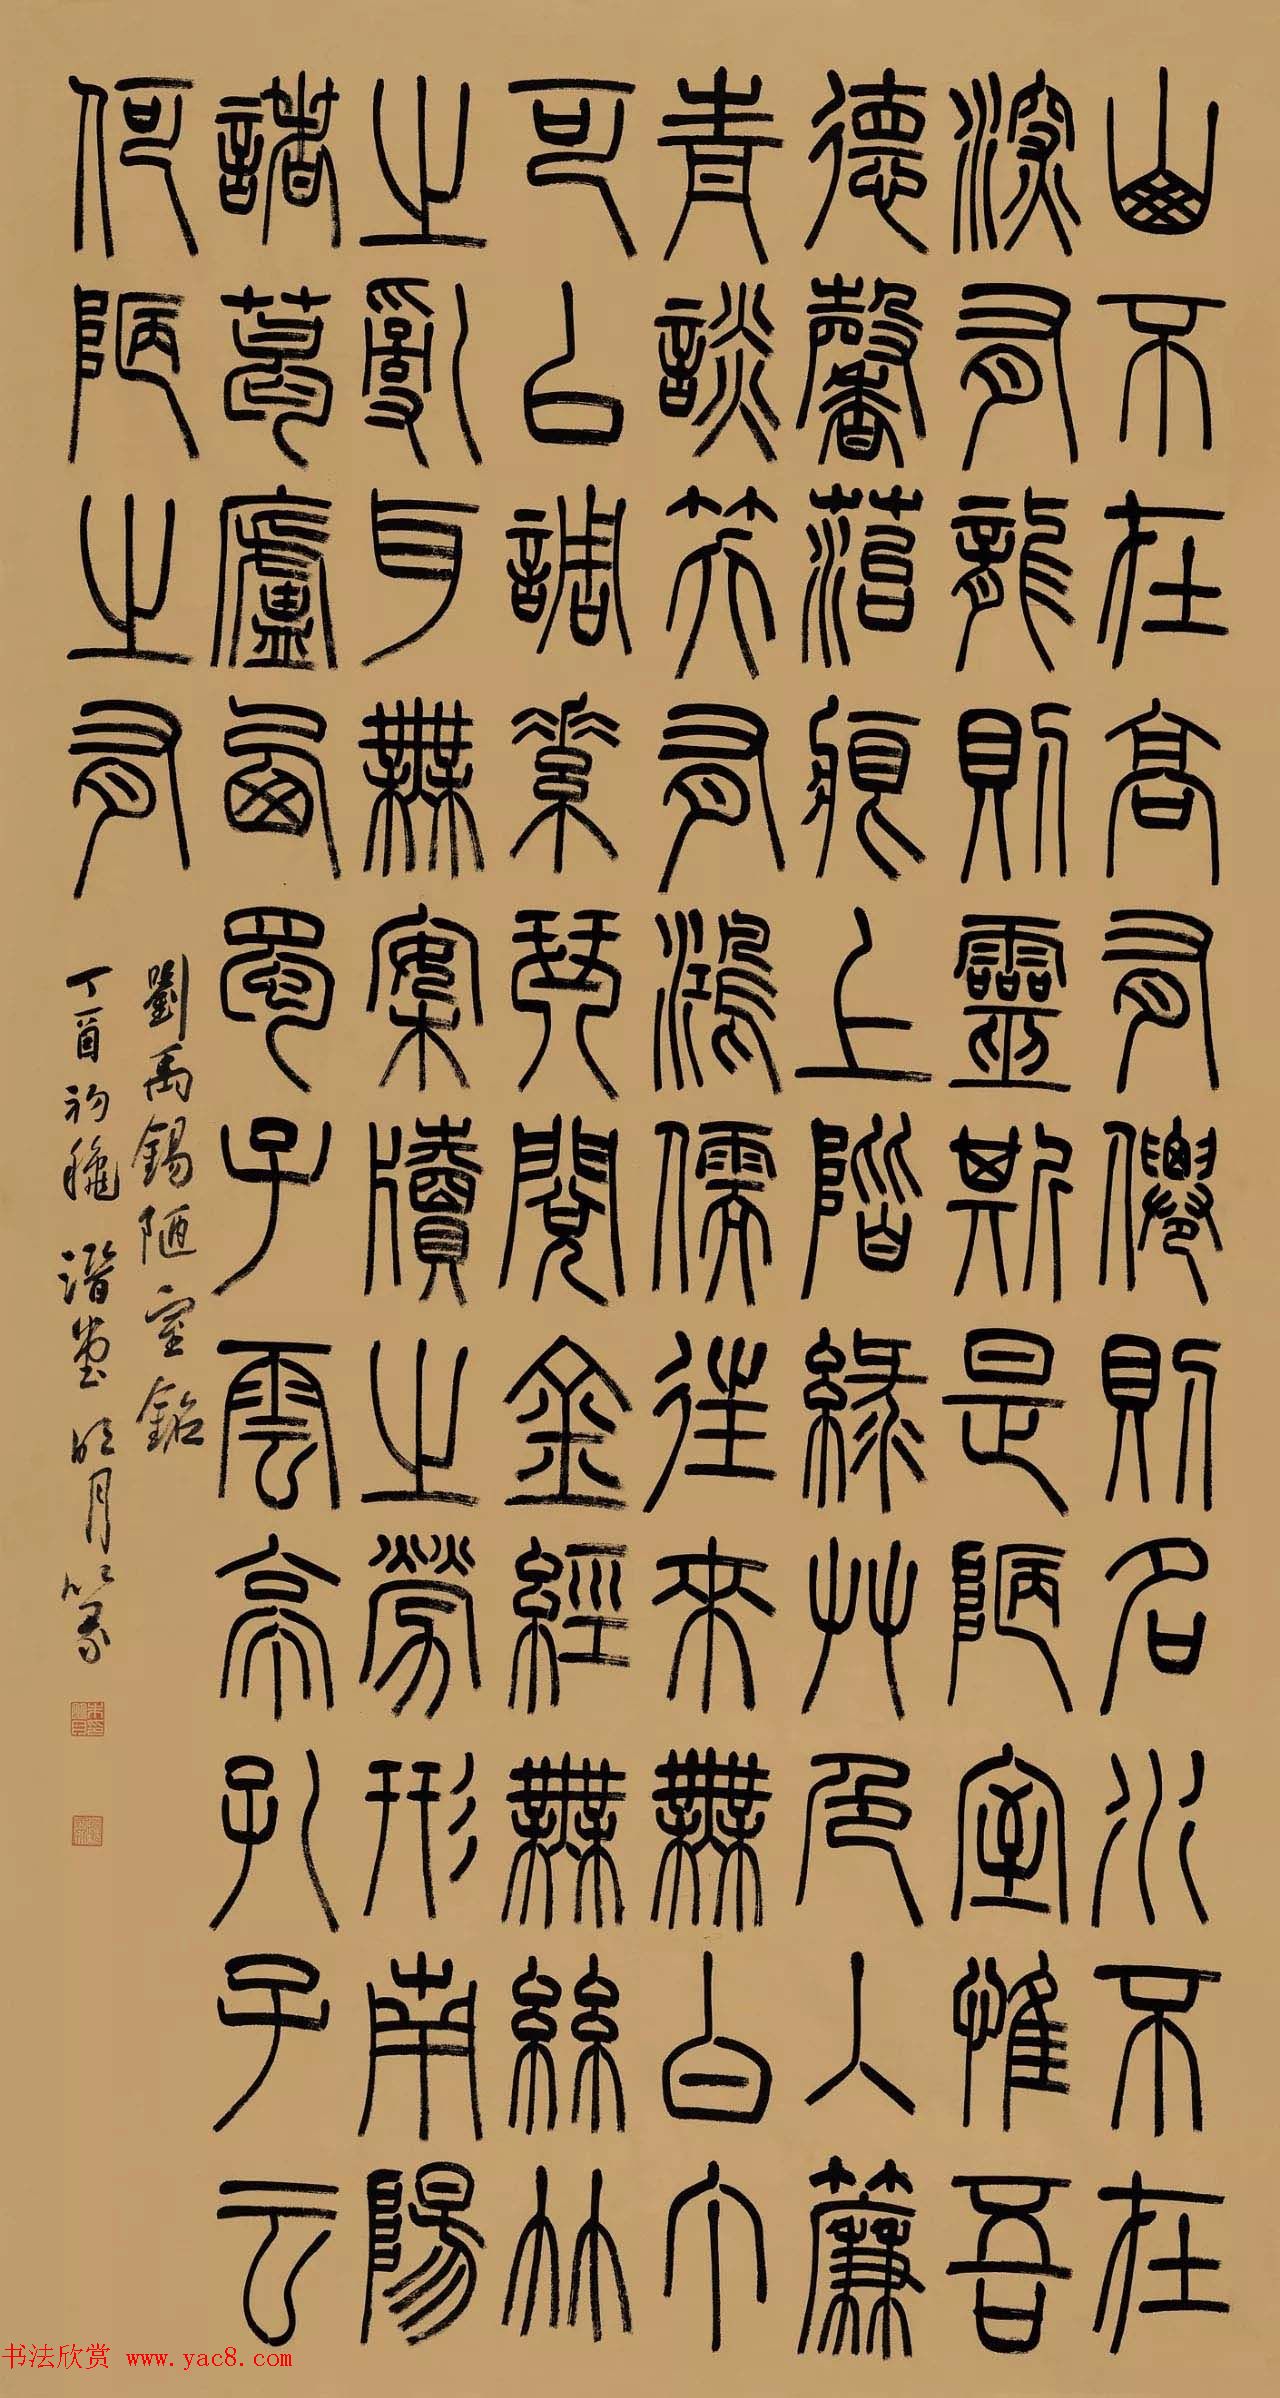 山不在高有僊則名水不在
深有龍則靈斯是陋室惟吾
德馨菭痕上階綠艸色入簾
青談笑有鴻儒往來無白丁
可以調素琴閱金經無絲竹
之亂耳無案牘之勞形南陽
諸葛廬西蜀子雲亭孔子云
何陋之有
劉禹錫陋室銘
丁酉初穐潛堂明月篆
书法欣赏 www.yac8.com